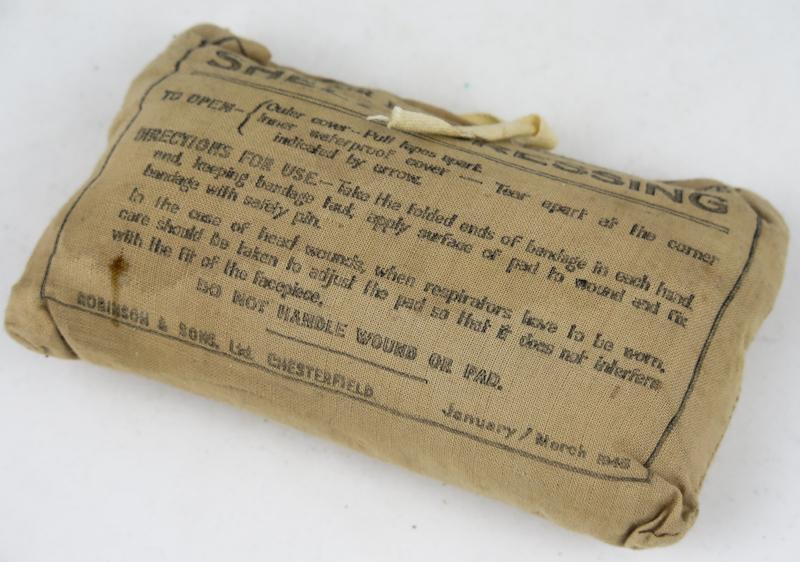 SHELL DRESSING
TO OPEN— { Outer cover—Pull tapes apart.
Inner waterproof cover — Tear apart at the corner
indicated by arrow.
DIRECTIONS FOR USE.—Take the folded ends of bandage in each hand,
and, keeping bandage taut, apply surface of pad to wound and fix
bandage with safety pin.
In the case of head wounds, when respirators have to be worn,
care should be taken to adjust the pad so that it does not interfere
with the fit of the facepiece.
DO NOT HANDLE WOUND OR PAD.
ROBINSON & SONS, Ltd. CHESTERFIELD
January/March